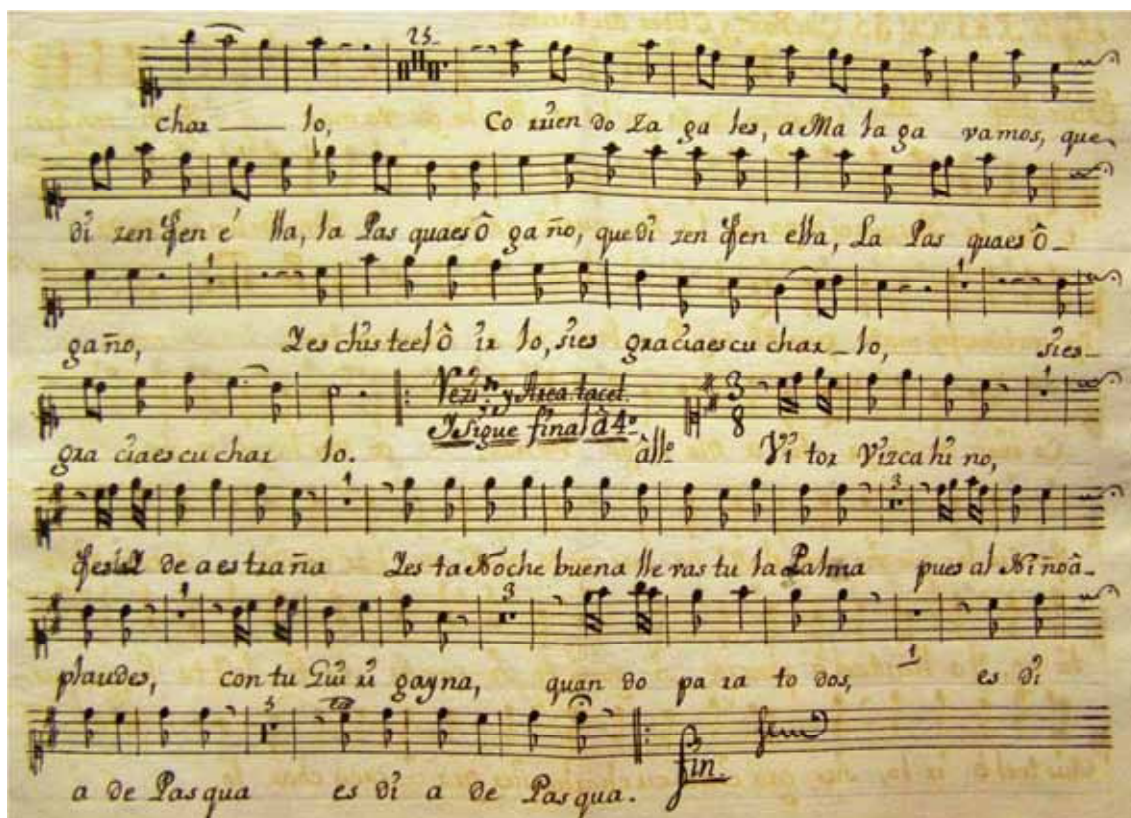 23.
char lo, Co rrien do Za ga les, a Ma la ga vamos, que
di zen qen é lla, la Pas quaes ô ga ño, que di zen qen ella, La Pas quaes ô
1 1
ga ño, Yes chis teel ô ir lo, sies graciaes cu char lo, sies
Vezi.n y Area tacet.
Y sigue final â 4º 3 8
gra ciaes cu char lo. âllº Vi tor Vizca hi no,
1 3
de a es tra ña Yes ta Noche buena lle vas tu la Palma pues al Ni ño â
1 3
plaudes, con tu gay na, quan do pa ra to dos, 1 es di
3
a de Pas qua es di a de Pas qua. fin.